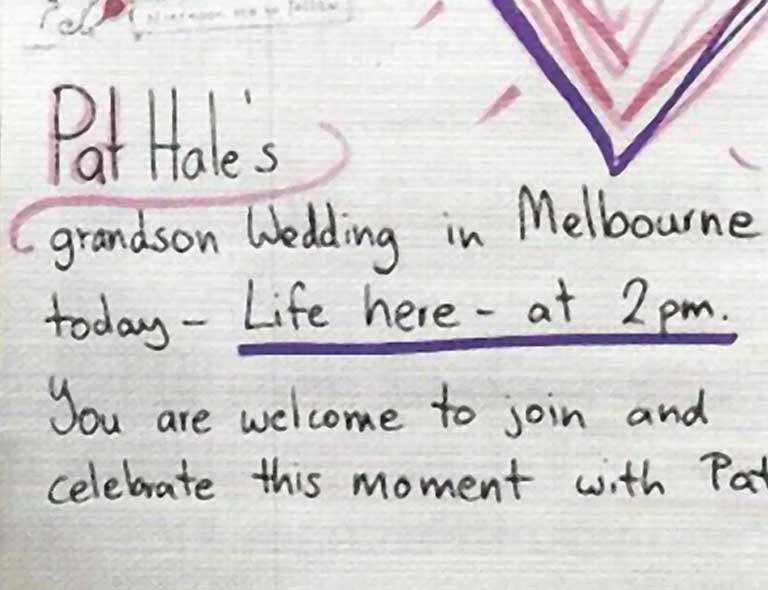 Pat Hale's
grandson Wedding in Melbourne
today - Life here - at 2pm.
You are welcome to join and
celebrate this moment with Pat